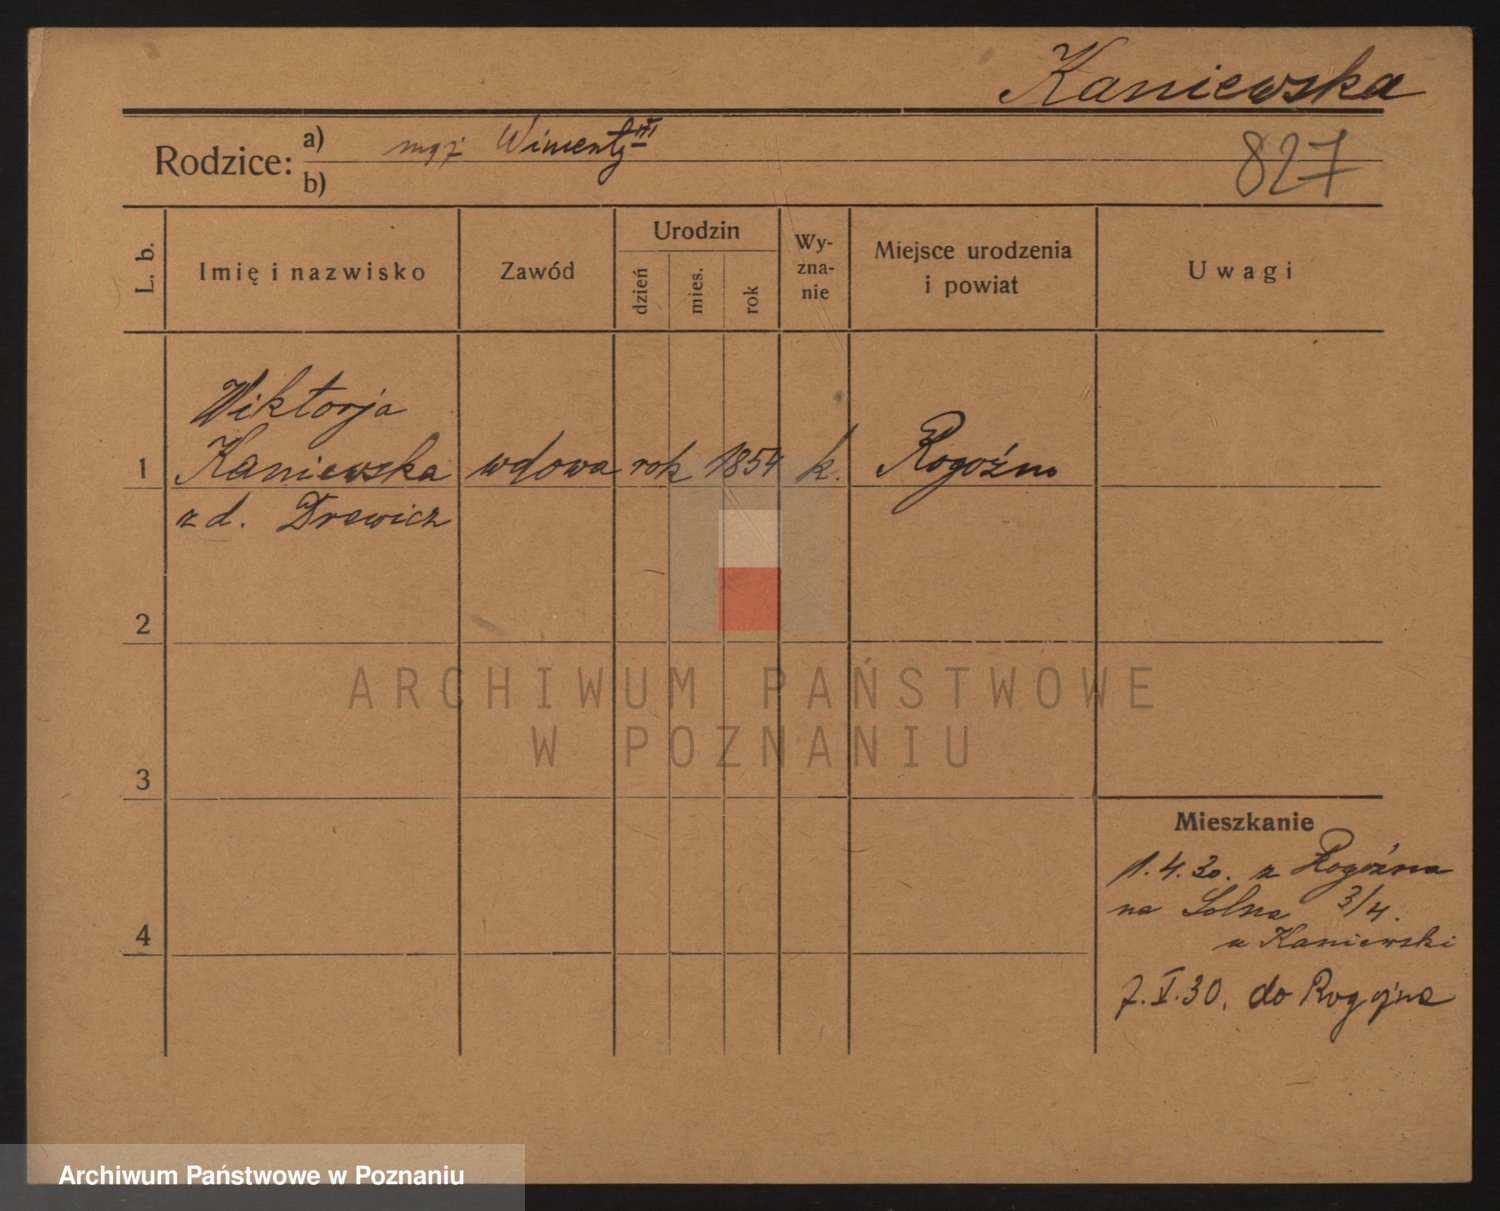 Kaniewska
827
Rodzice: a) mąż Wincenty
b)
L. b.
Imię i nazwisko
Zawód
Urodzin
dzień
mies.
rok
Wy-
zna-
nie
Miejsce urodzenia
i powiat
Uwagi
Wiktorja
1 Kaniewska wdowa rok 1854 k. Rogoźno
z d. Drewicz
2
ARCHIWUM PAŃSTWOWE
W POZNANIU
3
Mieszkanie
1.4.30. z Rogoźna
na Solna 3/4.
u Kaniewski
4
7.V.30. do Rogoźna
Archiwum Państwowe w Poznaniu